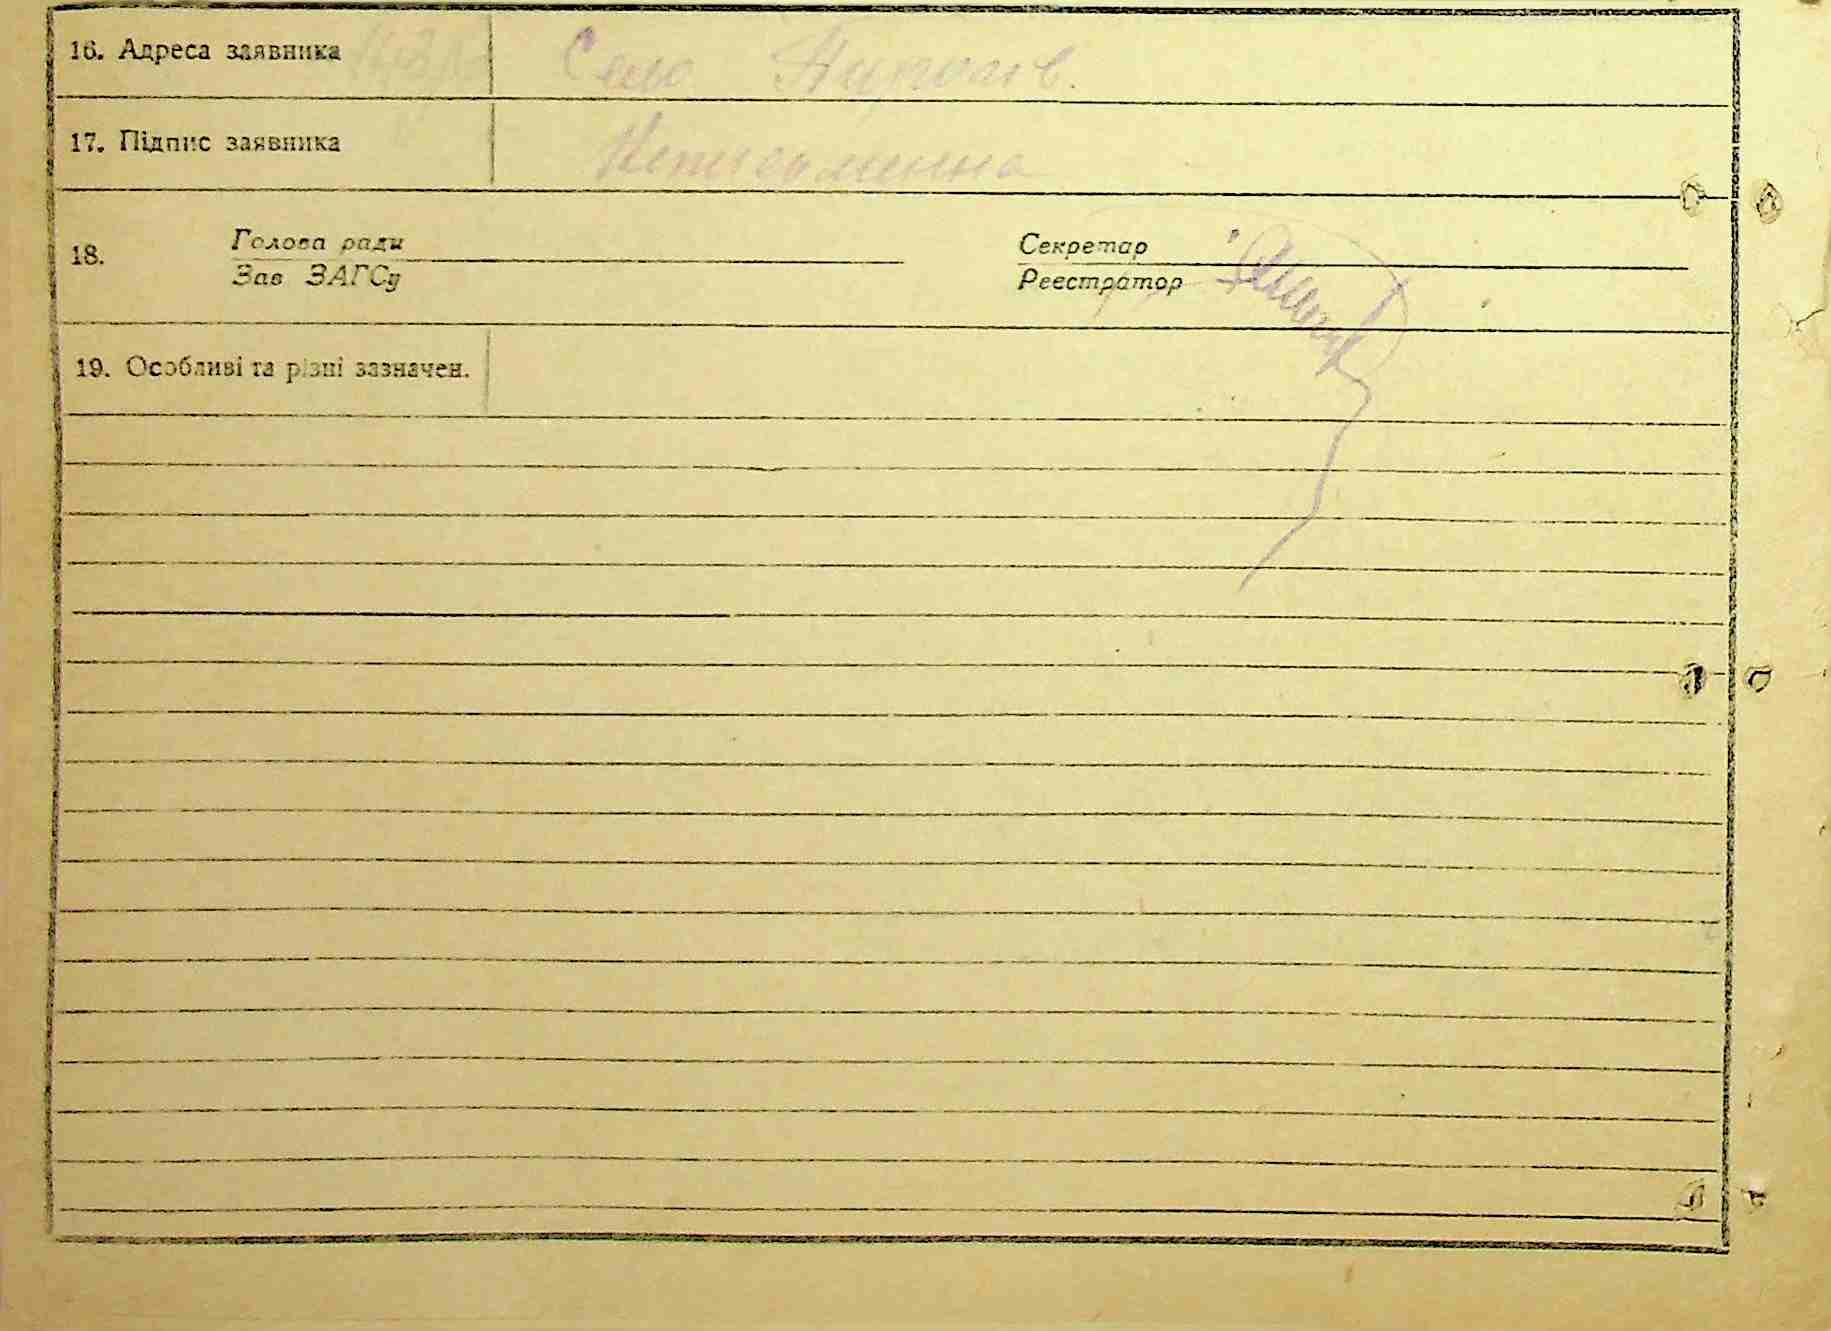 16. Адреса заявника Село
17. Підпис заявника
18. Голова ради Секретар
Зав ЗАГСу Реєстратор
19. Особливі та різні зазначен.